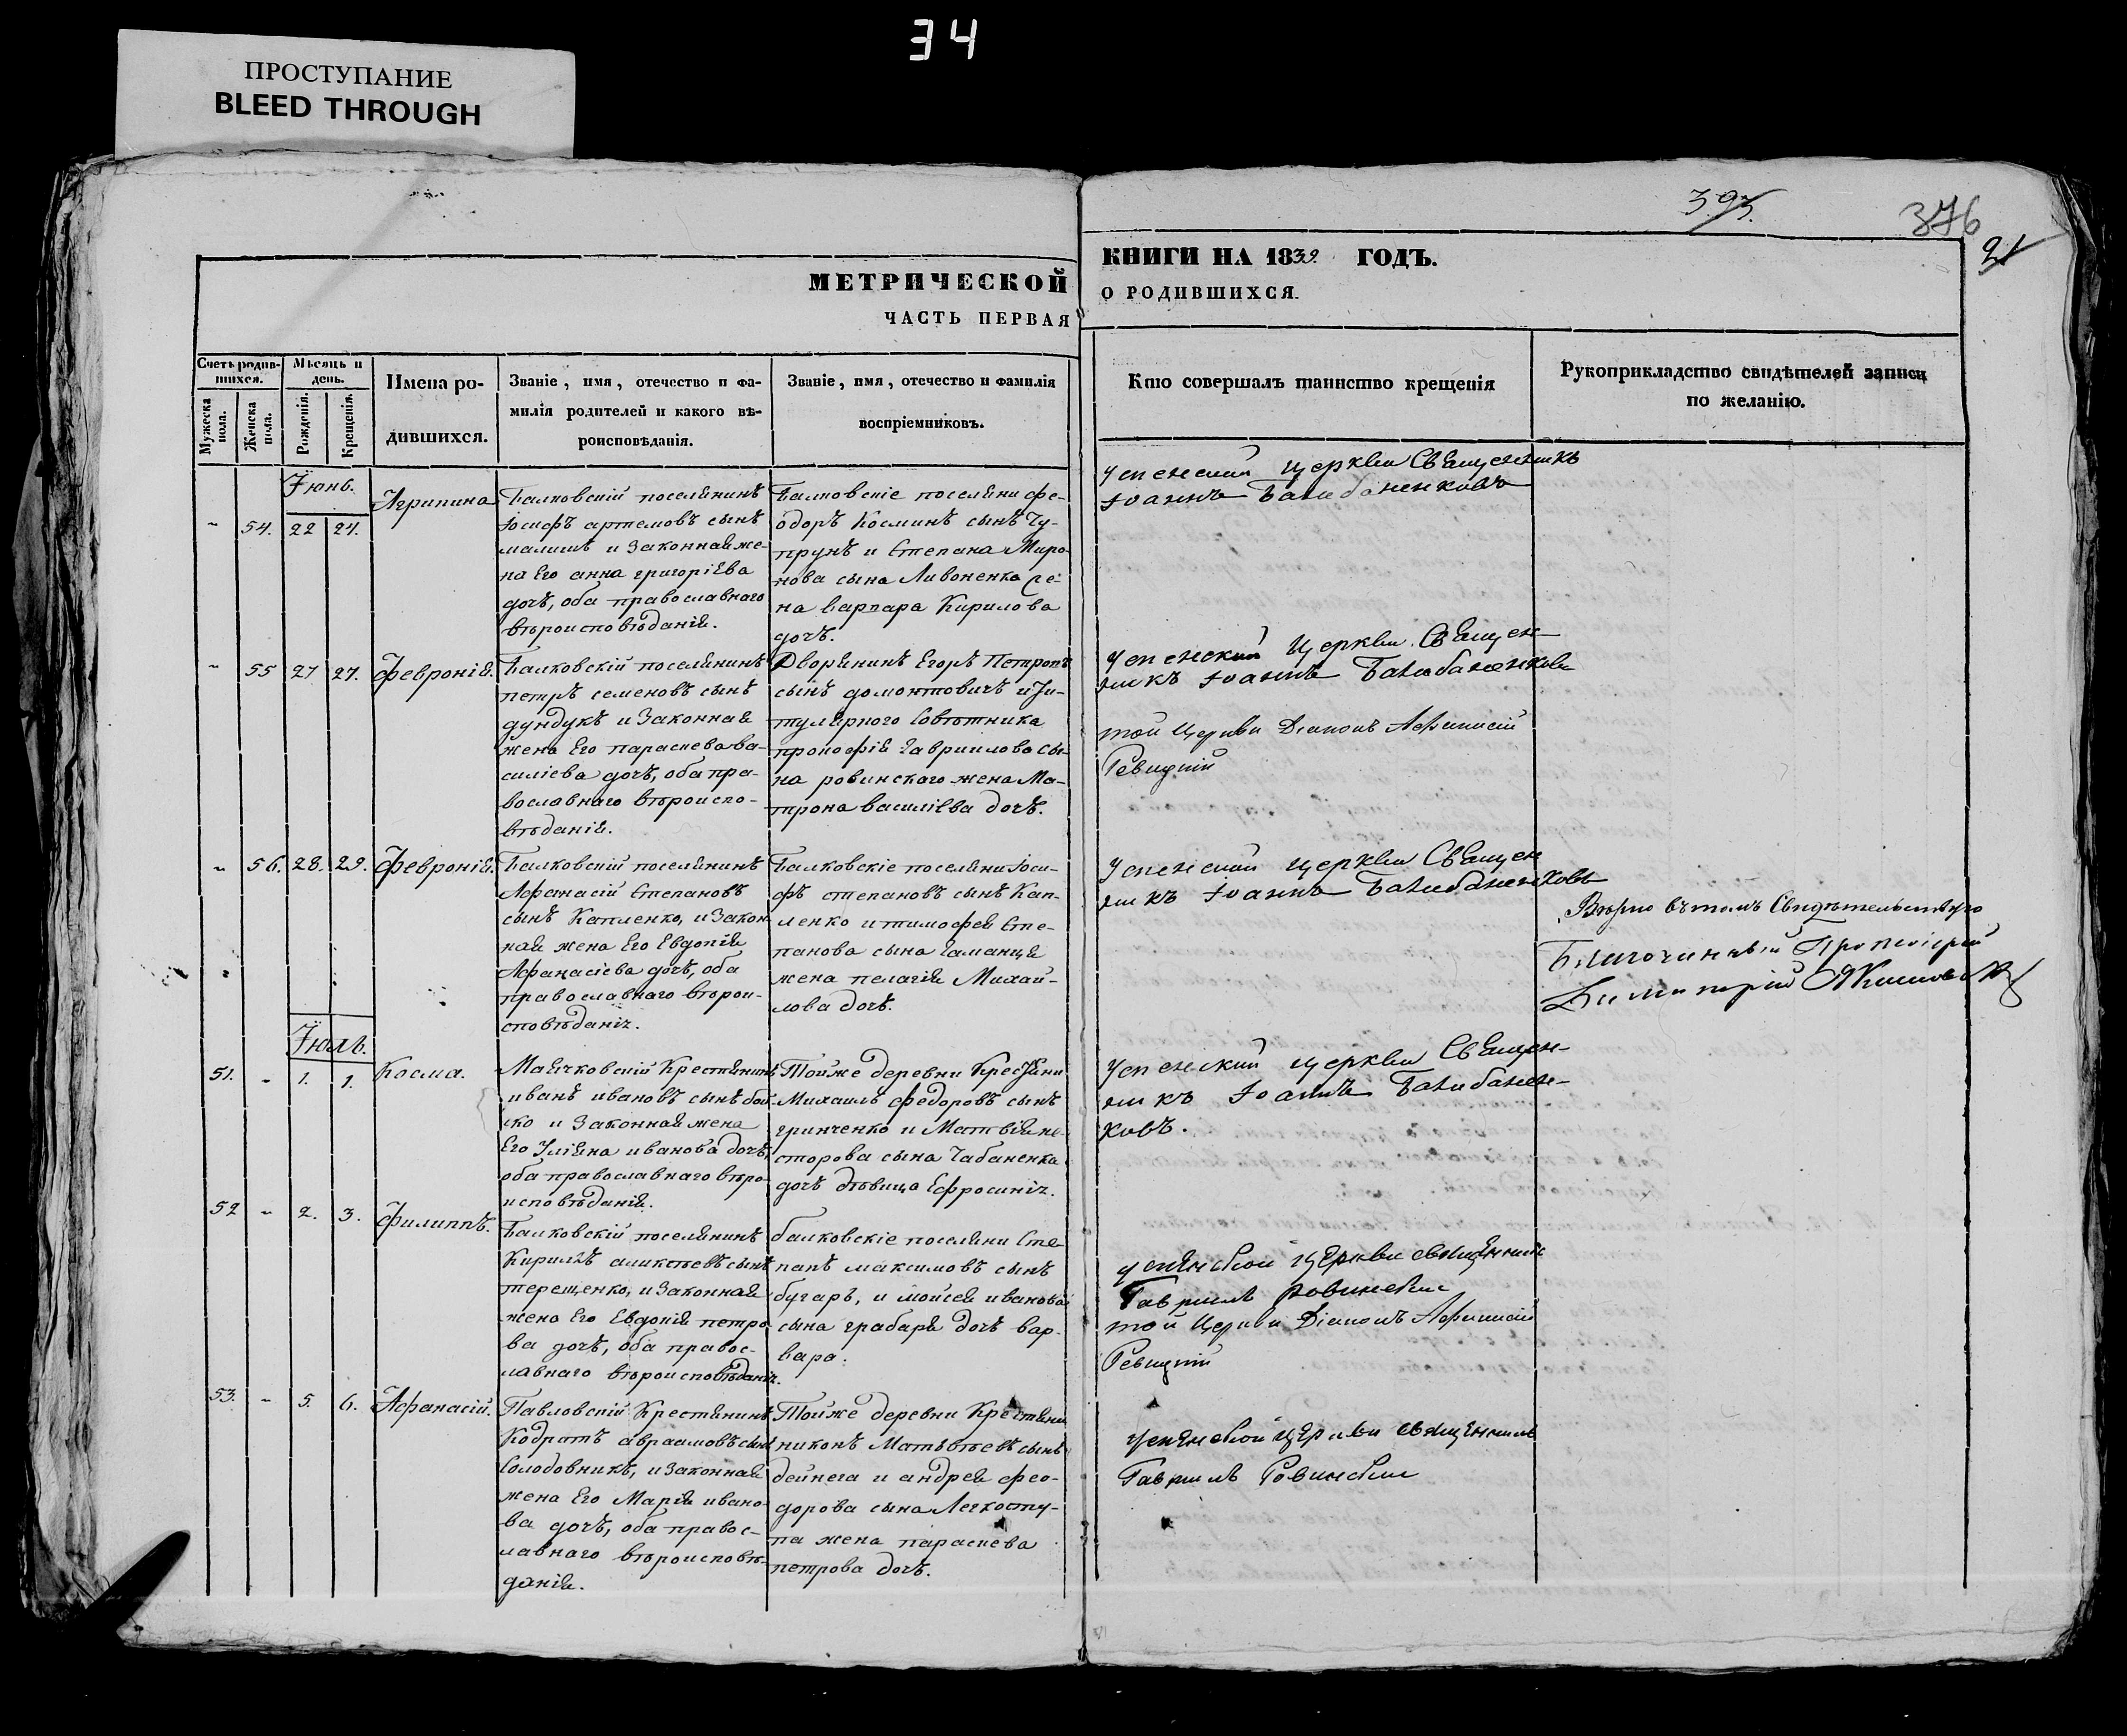 34
ПРОСТУПАНИЕ
BLEED THROUGH
393.
376
21
МЕТРИЧЕСКОЙ
ЧАСТЬ ПЕРВАЯ
КНИГИ НА 1839 ГОДЪ.
О РОДИВШИХСЯ.
Счетъ родив-
шихся.
Мужеска
пола.
Женска
пола.
Мѣсяцъ и
день.
Рожденія.
Крещенія.
Имена ро-
дившихся.
Званіе, имя, отечество и фа-
милія родителей и какого вѣ-
роисповѣданія.
Званіе, имя, отечество и фамилія
воспріемниковъ.
Кто совершалъ таинство крещенія
Рукоприкладство свидѣтелей записи
по желанію.
Іюнь.
54. 22 24.
Агрипина
Балковскій поселянинъ
Іосифъ артемовъ сынъ
и Законная же-
на Его анна григоріева
дочь, оба православнаго
вѣроисповѣданія.
Балковскіе поселяни фе-
одоръ Косминъ сынъ Чу-
прунъ и Степана Миро-
нова сына Ливоненка
на варвара Кирилова
дочь.
Успенской церкви Священникъ
Іоаннъ Балабаненковъ
55 27 27. Февронія.
Балковскій поселянинъ
петръ семеновъ сынъ
дундукъ и Законная
жена Его параскева ва-
силіева дочь, оба пра-
вославнаго вѣроиспо-
вѣданія.
Дворянинъ Егоръ Петровъ
сынъ домонтовичъ и Ти-
тулярнаго Совѣтника
прокофія гавриилова сы-
на ровинскаго жена Ма-
трона василіева дочь.
Успенской Церкви Священ-
никъ Іоаннъ Балабаненковъ
той Церкви Діаконъ Афанасій
Левицкій
56. 28. 29. Февронія.
Балковскій поселянинъ
Афанасій Степановъ
сынъ Капленко, и Закон-
ная жена Его Евдокія
Афанасіева дочь, оба
православнаго вѣрои-
сповѣданія.
Балковскіе поселяни Іоси-
фъ степановъ сынъ Кап-
ленко и тимофея Сте-
панова сына Гаманця
жена пелагія Михай-
лова дочь.
Успенской церкви Священ
никъ Іоаннъ Балабаненковъ
Вѣрно въ томъ Свидѣтельствую
Благочинный Протоіерей
Димитрій
Іюль.
51. 1. 1. Косма.
Маячковскій Крестянинъ
иванъ ивановъ сынъ бой-
ко и Законная жена
Его Уліяна иванова дочь,
оба православнаго вѣро-
исповѣданія.
Тойже деревни Крестяни
Михаилъ федоровъ сынъ
гринченко и Матвѣя не-
сторова сына Чабаненка
дочь дѣвица Ефросинія.
Успенской церкви Священ-
никъ Іоаннъ Балабанен-
ковъ.
52 2. 3. Филиппъ.
Балковскій поселянинъ
Кирилъ аликсѣевъ сынъ
терещенко, и Законная
жена Его Евдокія петро-
ва дочь, оба правос-
лавнаго вѣроисповѣданія.
балковскіе поселяни Сте-
панъ максимовъ сынъ
бугаръ, и моисея иванова
сына грабаря дочь вар-
вара.
успенской церкви священникъ
Гавріилъ Ровинскій
той Церкви Діаконъ Афанасій
Левицкій
53. 5. 6. Афанасій.
Павловскій Крестянинъ
Кодратъ авраамовъ сынъ
Солодовникъ, и Законная
жена Его Марія ивано-
ва дочь, оба правос-
лавнаго вѣроисповѣ-
данія.
Тойже деревни Крестяни
никонъ Матвѣевъ сынъ
дейнега и андрея фео-
дорова сына Легкосту-
па жена параскева
петрова дочь.
Успенской церкви священникъ
Гавріилъ Ровинскій